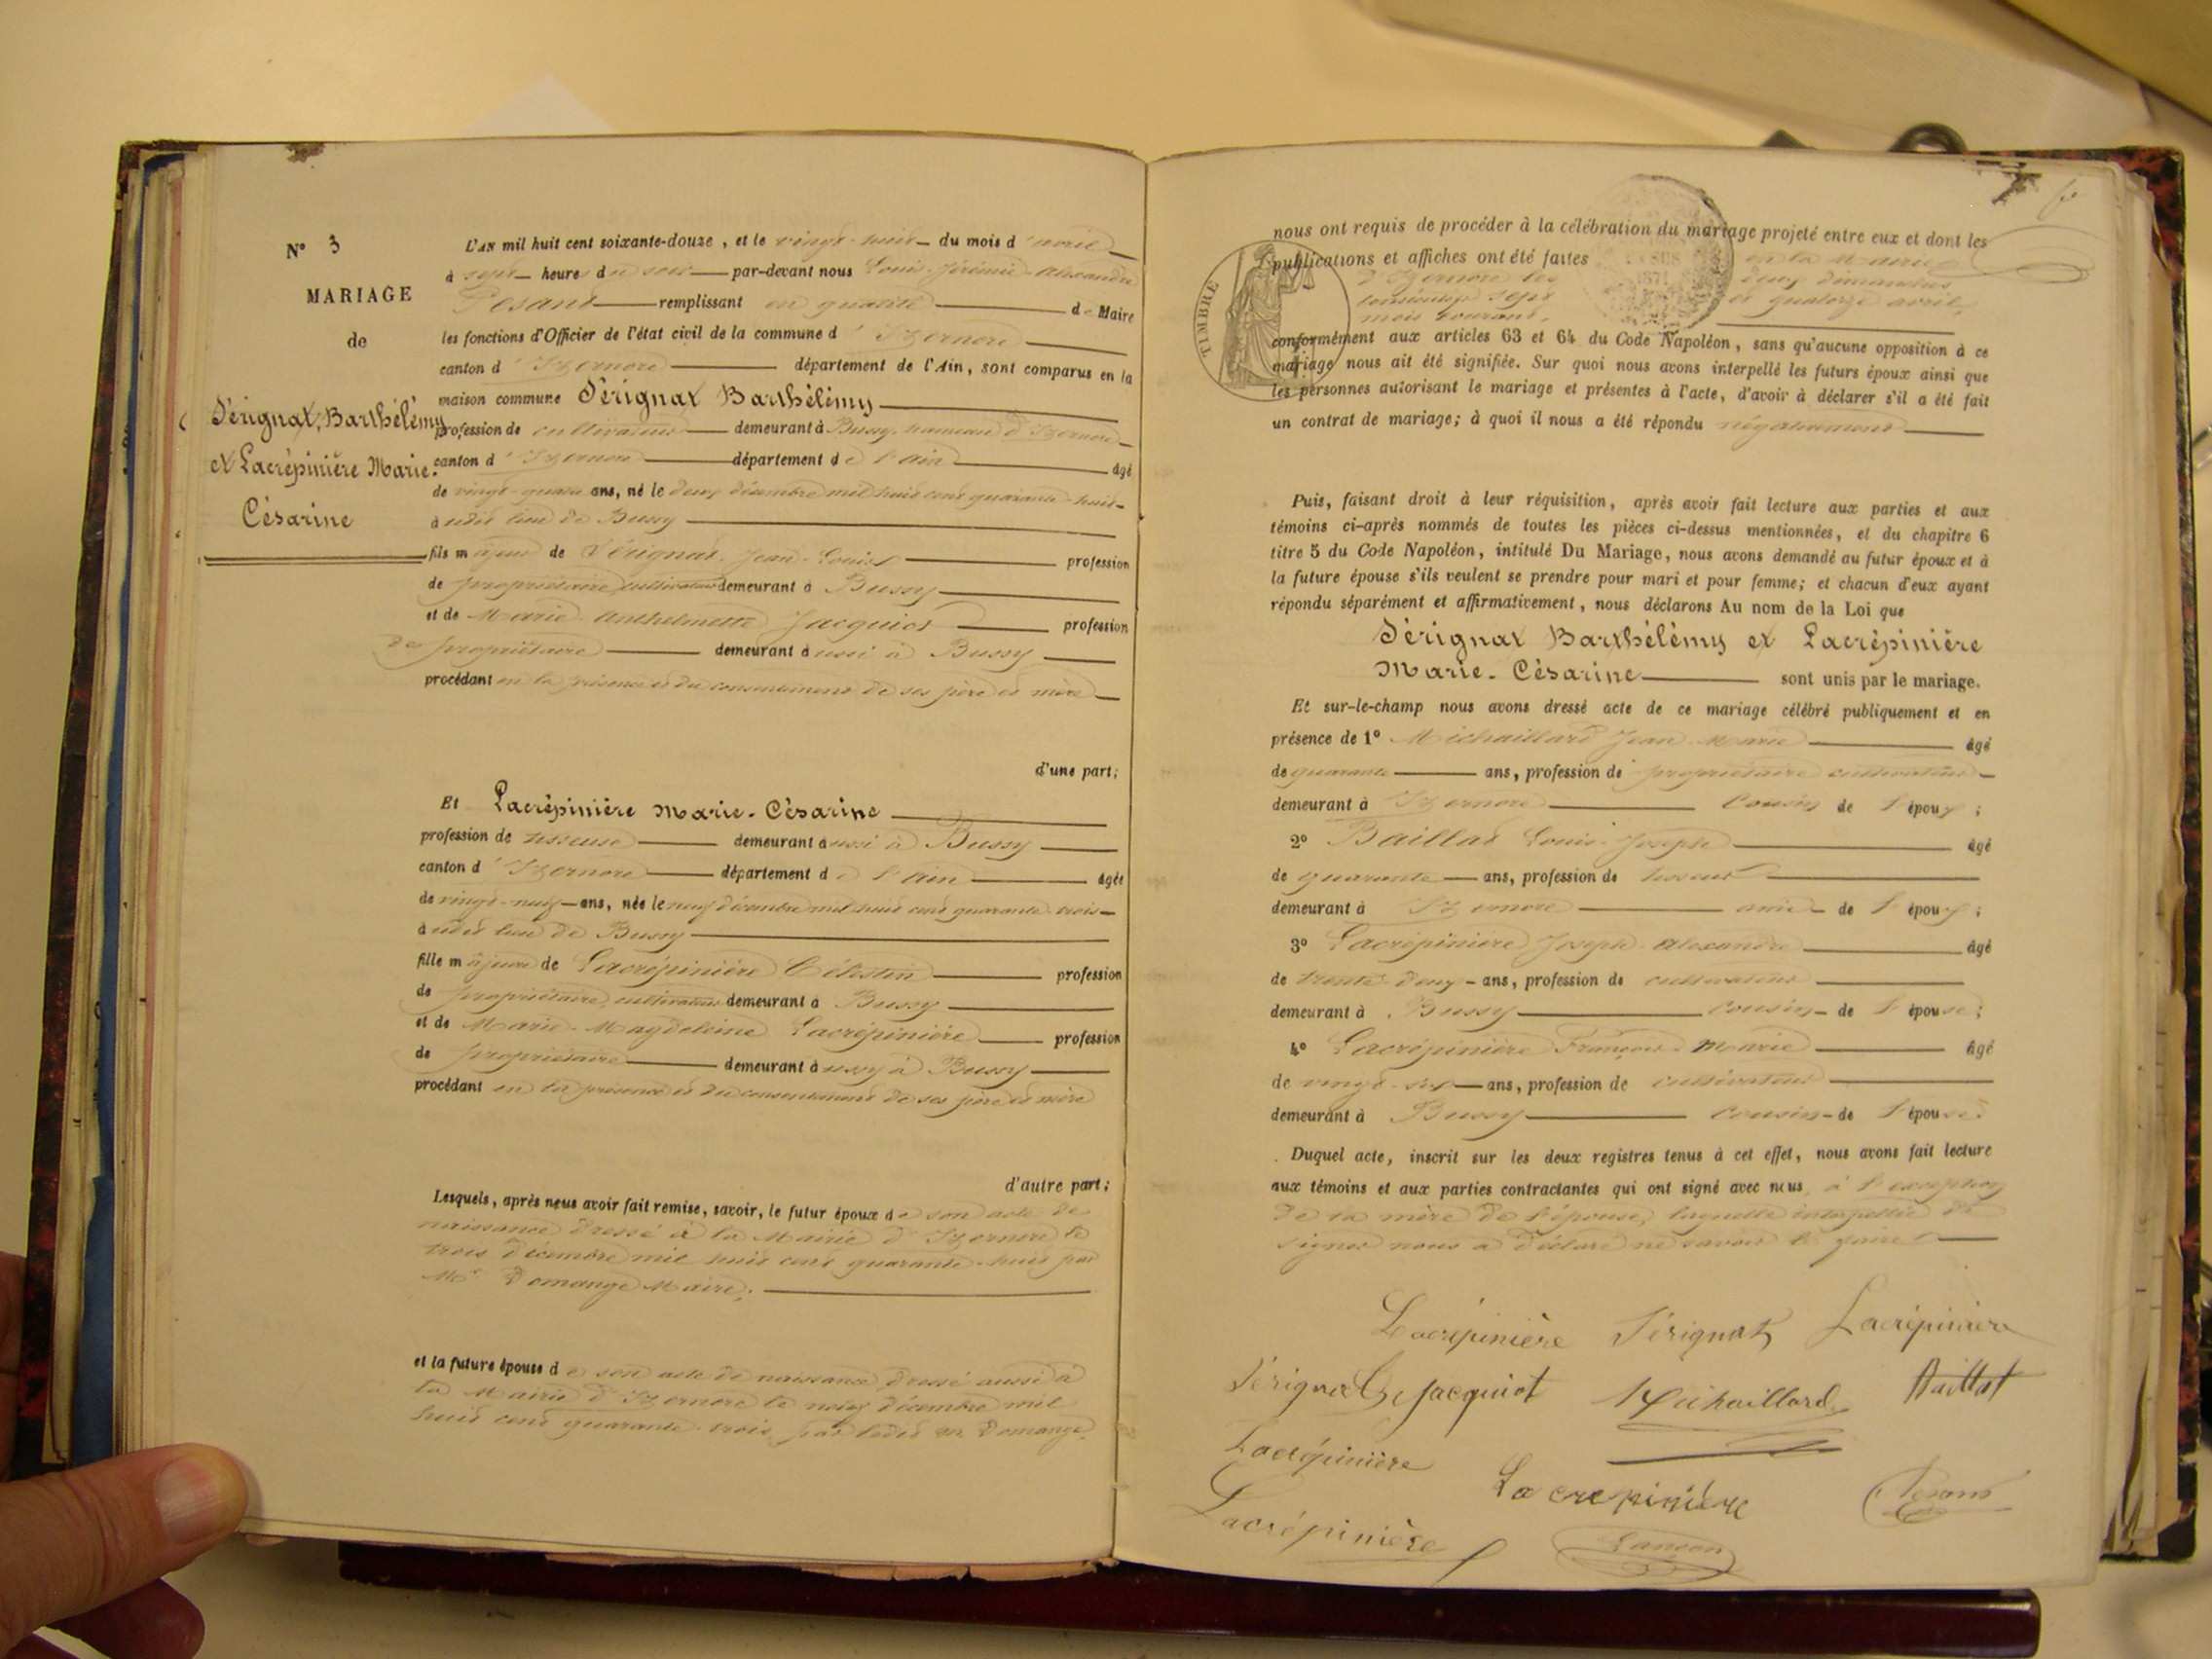 N° 3
MARIAGE
de
Pérignat, Barthélémy
et Lacrépinière Marie-
Césarine
L'AN mil huit cent soixante-douze, et le vingt-huit du mois d'avril
à sept heures du soir par-devant nous Louis-Jérémie-Alexandre
Pesant remplissant en qualité de Maire
les fonctions d'Officier de l'état civil de la commune d'Izernore
canton d'Izernore département de l'Ain, sont comparus en la
maison commune Pérignat Barthélémy
profession de cultivateur demeurant à Bussy, hameau d'Izernore
canton d'Izernore département de l'Ain âgé
de vingt-quatre ans, né le deux décembre mil huit cent quarante-huit
à udit lieu de Bussy
fils majeur de Pérignat Jean-Louis profession
de propriétaire cultivateur demeurant à Bussy
et de Marie Anthelmette Jacquiot profession
de propriétaire demeurant aussi à Bussy
procédant en la présence et du consentement de ses père et mère
d'une part;
Et Lacrépinière Marie-Césarine
profession de tisseuse demeurant aussi à Bussy
canton d'Izernore département de l'Ain âgée
de vingt-neuf ans, née le neuf décembre mil huit cent quarante-trois
audit lieu de Bussy
fille majeure de Lacrépinière Célestin profession
de propriétaire cultivateur demeurant à Bussy
et de Marie-Magdeleine Lacrépinière profession
de propriétaire demeurant aussy à Bussy
procédant en la présence et du consentement de ses père et mère
d'autre part;
Lesquels, après nous avoir fait remise, savoir, le futur époux de son acte de
naissance dressé à la Mairie d'Izernore le
trois décembre mil huit cent quarante-huit par
Mr Domange Maire;
et la future épouse de son acte de naissance dressé aussi à
la Mairie d'Izernore le neuf décembre mil
huit cent quarante-trois par ledit mr Domange.
TIMBRE
1871
nous ont requis de procéder à la célébration du mariage projeté entre eux et dont les
publications et affiches ont été faites en la Mairie
d'Izernore les deux dimanches
sept et quatorze avril,
mois courant,
conformément aux articles 63 et 64 du Code Napoléon, sans qu'aucune opposition à ce
mariage nous ait été signifiée. Sur quoi nous avons interpellé les futurs époux ainsi que
les personnes autorisant le mariage et présentes à l'acte, d'avoir à déclarer s'il a été fait
un contrat de mariage; à quoi il nous a été répondu négativement
Puis, faisant droit à leur réquisition, après avoir fait lecture aux parties et aux
témoins ci-après nommés de toutes les pièces ci-dessus mentionnées, et du chapitre 6
titre 5 du Code Napoléon, intitulé Du Mariage, nous avons demandé au futur époux et à
la future épouse s'ils veulent se prendre pour mari et pour femme; et chacun d'eux ayant
répondu séparément et affirmativement, nous déclarons Au nom de la Loi que
Pérignat Barthélémy et Lacrépinière
Marie-Césarine sont unis par le mariage.
Et sur-le-champ nous avons dressé acte de ce mariage célébré publiquement et en
présence de 1° Michaillard Jean-Marie âgé
de quarante ans, profession de propriétaire cultivateur
demeurant à Izernore cousin de l'époux;
2° Baillat Louis-Joseph âgé
de quarante ans, profession de tisseur
demeurant à Izernore ami de l'époux;
3° Lacrépinière Joseph-Alexandre âgé
de trente-deux ans, profession de cultivateur
demeurant à Bussy cousin de l'épouse;
4° Lacrépinière François-Marie âgé
de vingt-six ans, profession de cultivateur
demeurant à Bussy cousin de l'épouse.
Duquel acte, inscrit sur les deux registres tenus à cet effet, nous avons fait lecture
aux témoins et aux parties contractantes qui ont signé avec nous, à l'exception
de la mère de l'épouse, laquelle interpellée de
signer nous a déclaré ne savoir le faire
Lacrépinière Pérignat Lacrépinière
Pérignat Jacquiot Michaillard Baillat
Lacrépinière Lacrepinière Pesant
Lacrépinière Lançon